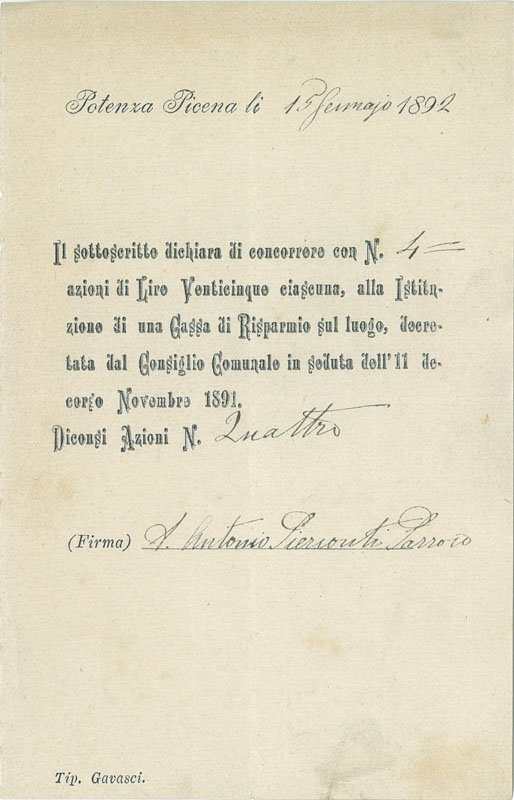 Potenza Picena li 15 Gennajo 1892
Il sottoscritto dichiara di concorrere con N. 4=
azioni di Lire Venticinque ciascuna, alla Istitu-
zione di una Cassa di Risparmio sul luogo, decre-
tata dal Consiglio Comunale in seduta dell'11 de-
corso Novembre 1891.
Diconsi Azioni N. Quattro
(Firma) Antonio Parroco
Tip. Gavasci.